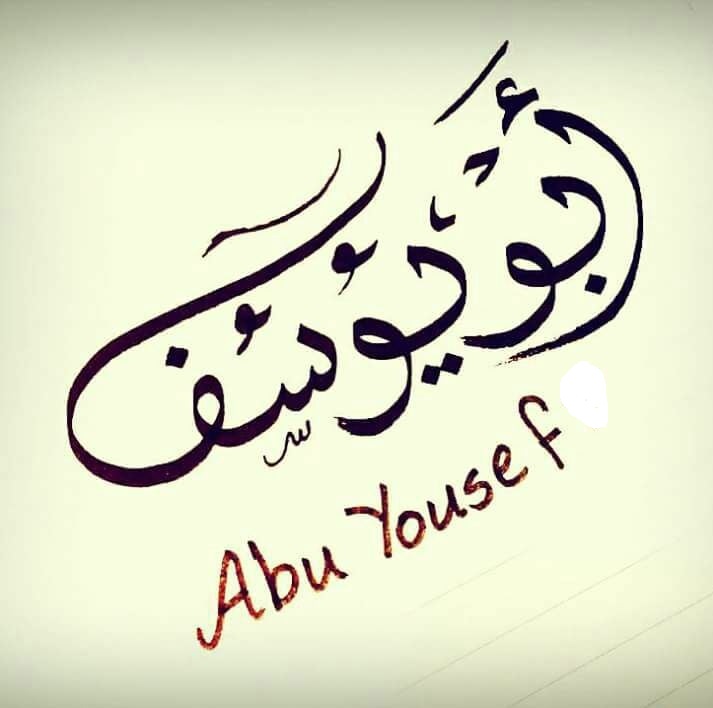 أبو يوسف
Abu Yousef